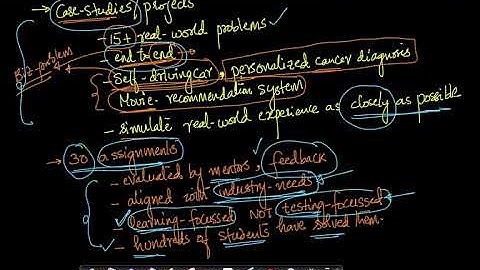 → Case-Studies, projects
- 15+ real-world problems
- end to end
Biz-problem
- Self-driving car, personalized cancer diagnosis
Movie-recommendation system
- simulate real-world experience as closely as possible
→ 30 assignments
- evaluated by mentors, feedback
- aligned with industry-needs
- learning-focussed NOT testing-focussed
- hundreds of students have solved them.